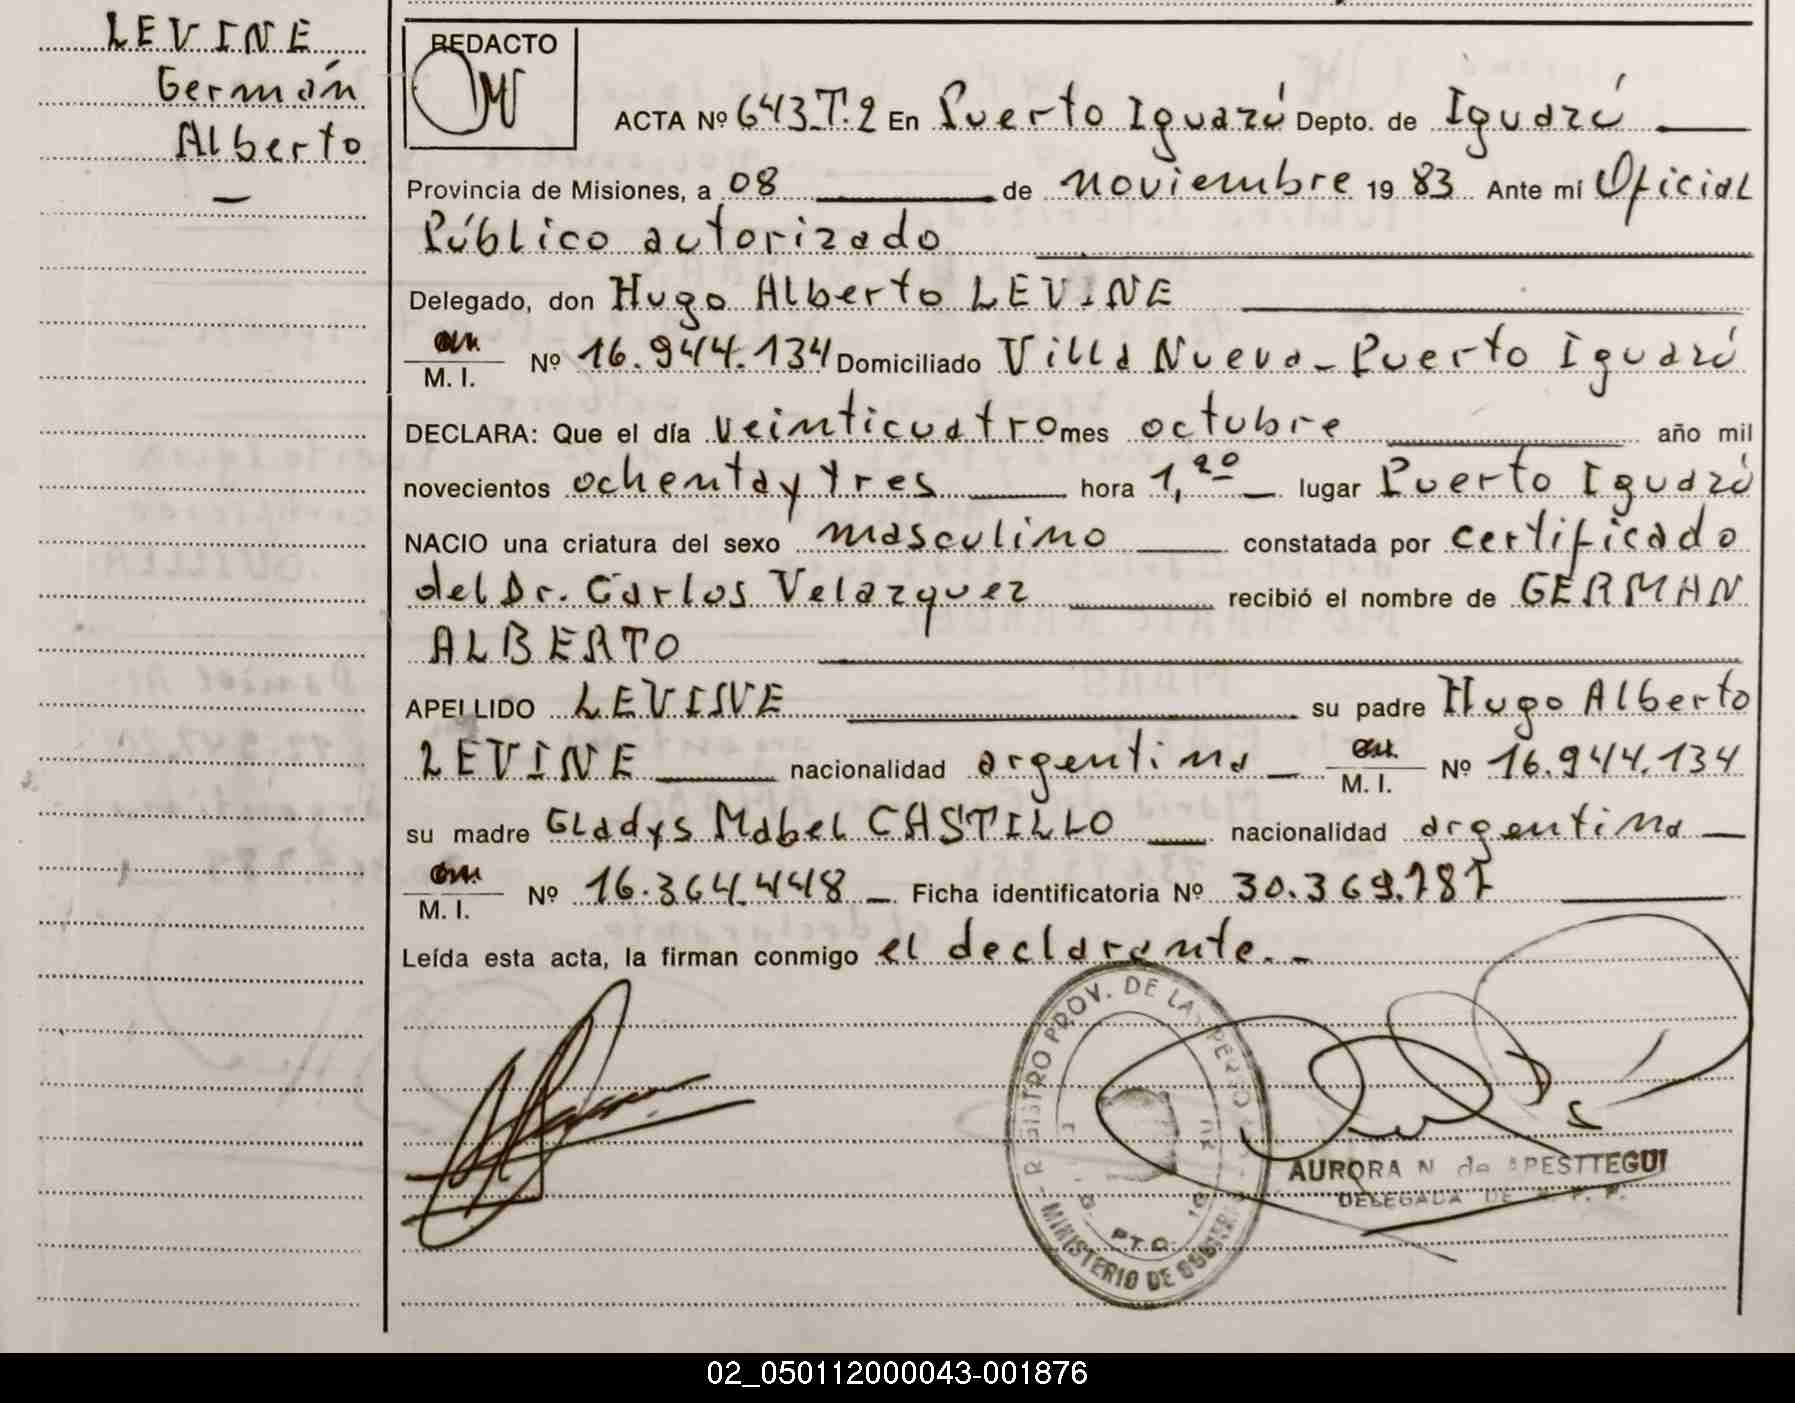 LEVINE
Germán
Alberto
—
REDACTO
ACTA Nº 643 T.2 En Puerto Iguazú Depto. de Iguazú
Provincia de Misiones, a 08 de noviembre 19 83 Ante mí Oficial
Público autorizado
Delegado, don Hugo Alberto LEVINE
M. I. Nº 16.944.134 Domiciliado Villa Nueva - Puerto Iguazú
DECLARA: Que el día veinticuatro mes octubre año mil
novecientos ochenta y tres hora 1,20 lugar Puerto Iguazú
NACIO una criatura del sexo masculino constatada por certificado
del Dr. Carlos Velazquez recibió el nombre de GERMAN
ALBERTO
APELLIDO LEVINE su padre Hugo Alberto
LEVINE nacionalidad argentina M. I. Nº 16.944.134
su madre Gladys Mabel CASTILLO nacionalidad argentina
M. I. Nº 16.364.448 Ficha identificatoria Nº 30.369.787
Leída esta acta, la firman conmigo el declarante.-
PROV. DE LAS PERSO
MINISTERIO DE
PTO.
AURORA N de APESTTEGUI
DELEGADA DE
02_050112000043-001876